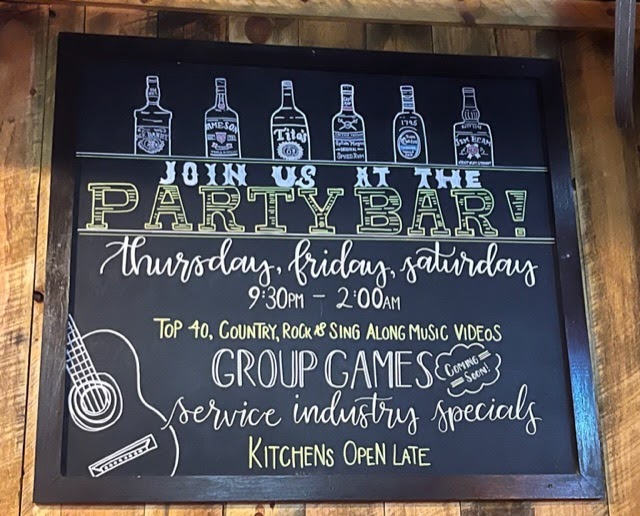 BACARDI JAMESON Tito's Captain Morgan ORIGINAL SPICED RUM 1795 JIM BEAM
JOIN US AT THE
PARTY BAR!
thursday, friday, saturday
9:30PM - 2:00AM
TOP 40, COUNTRY, ROCK & SING ALONG MUSIC VIDEOS
GROUP GAMES COMING SOON!
service industry specials
KITCHENS OPEN LATE